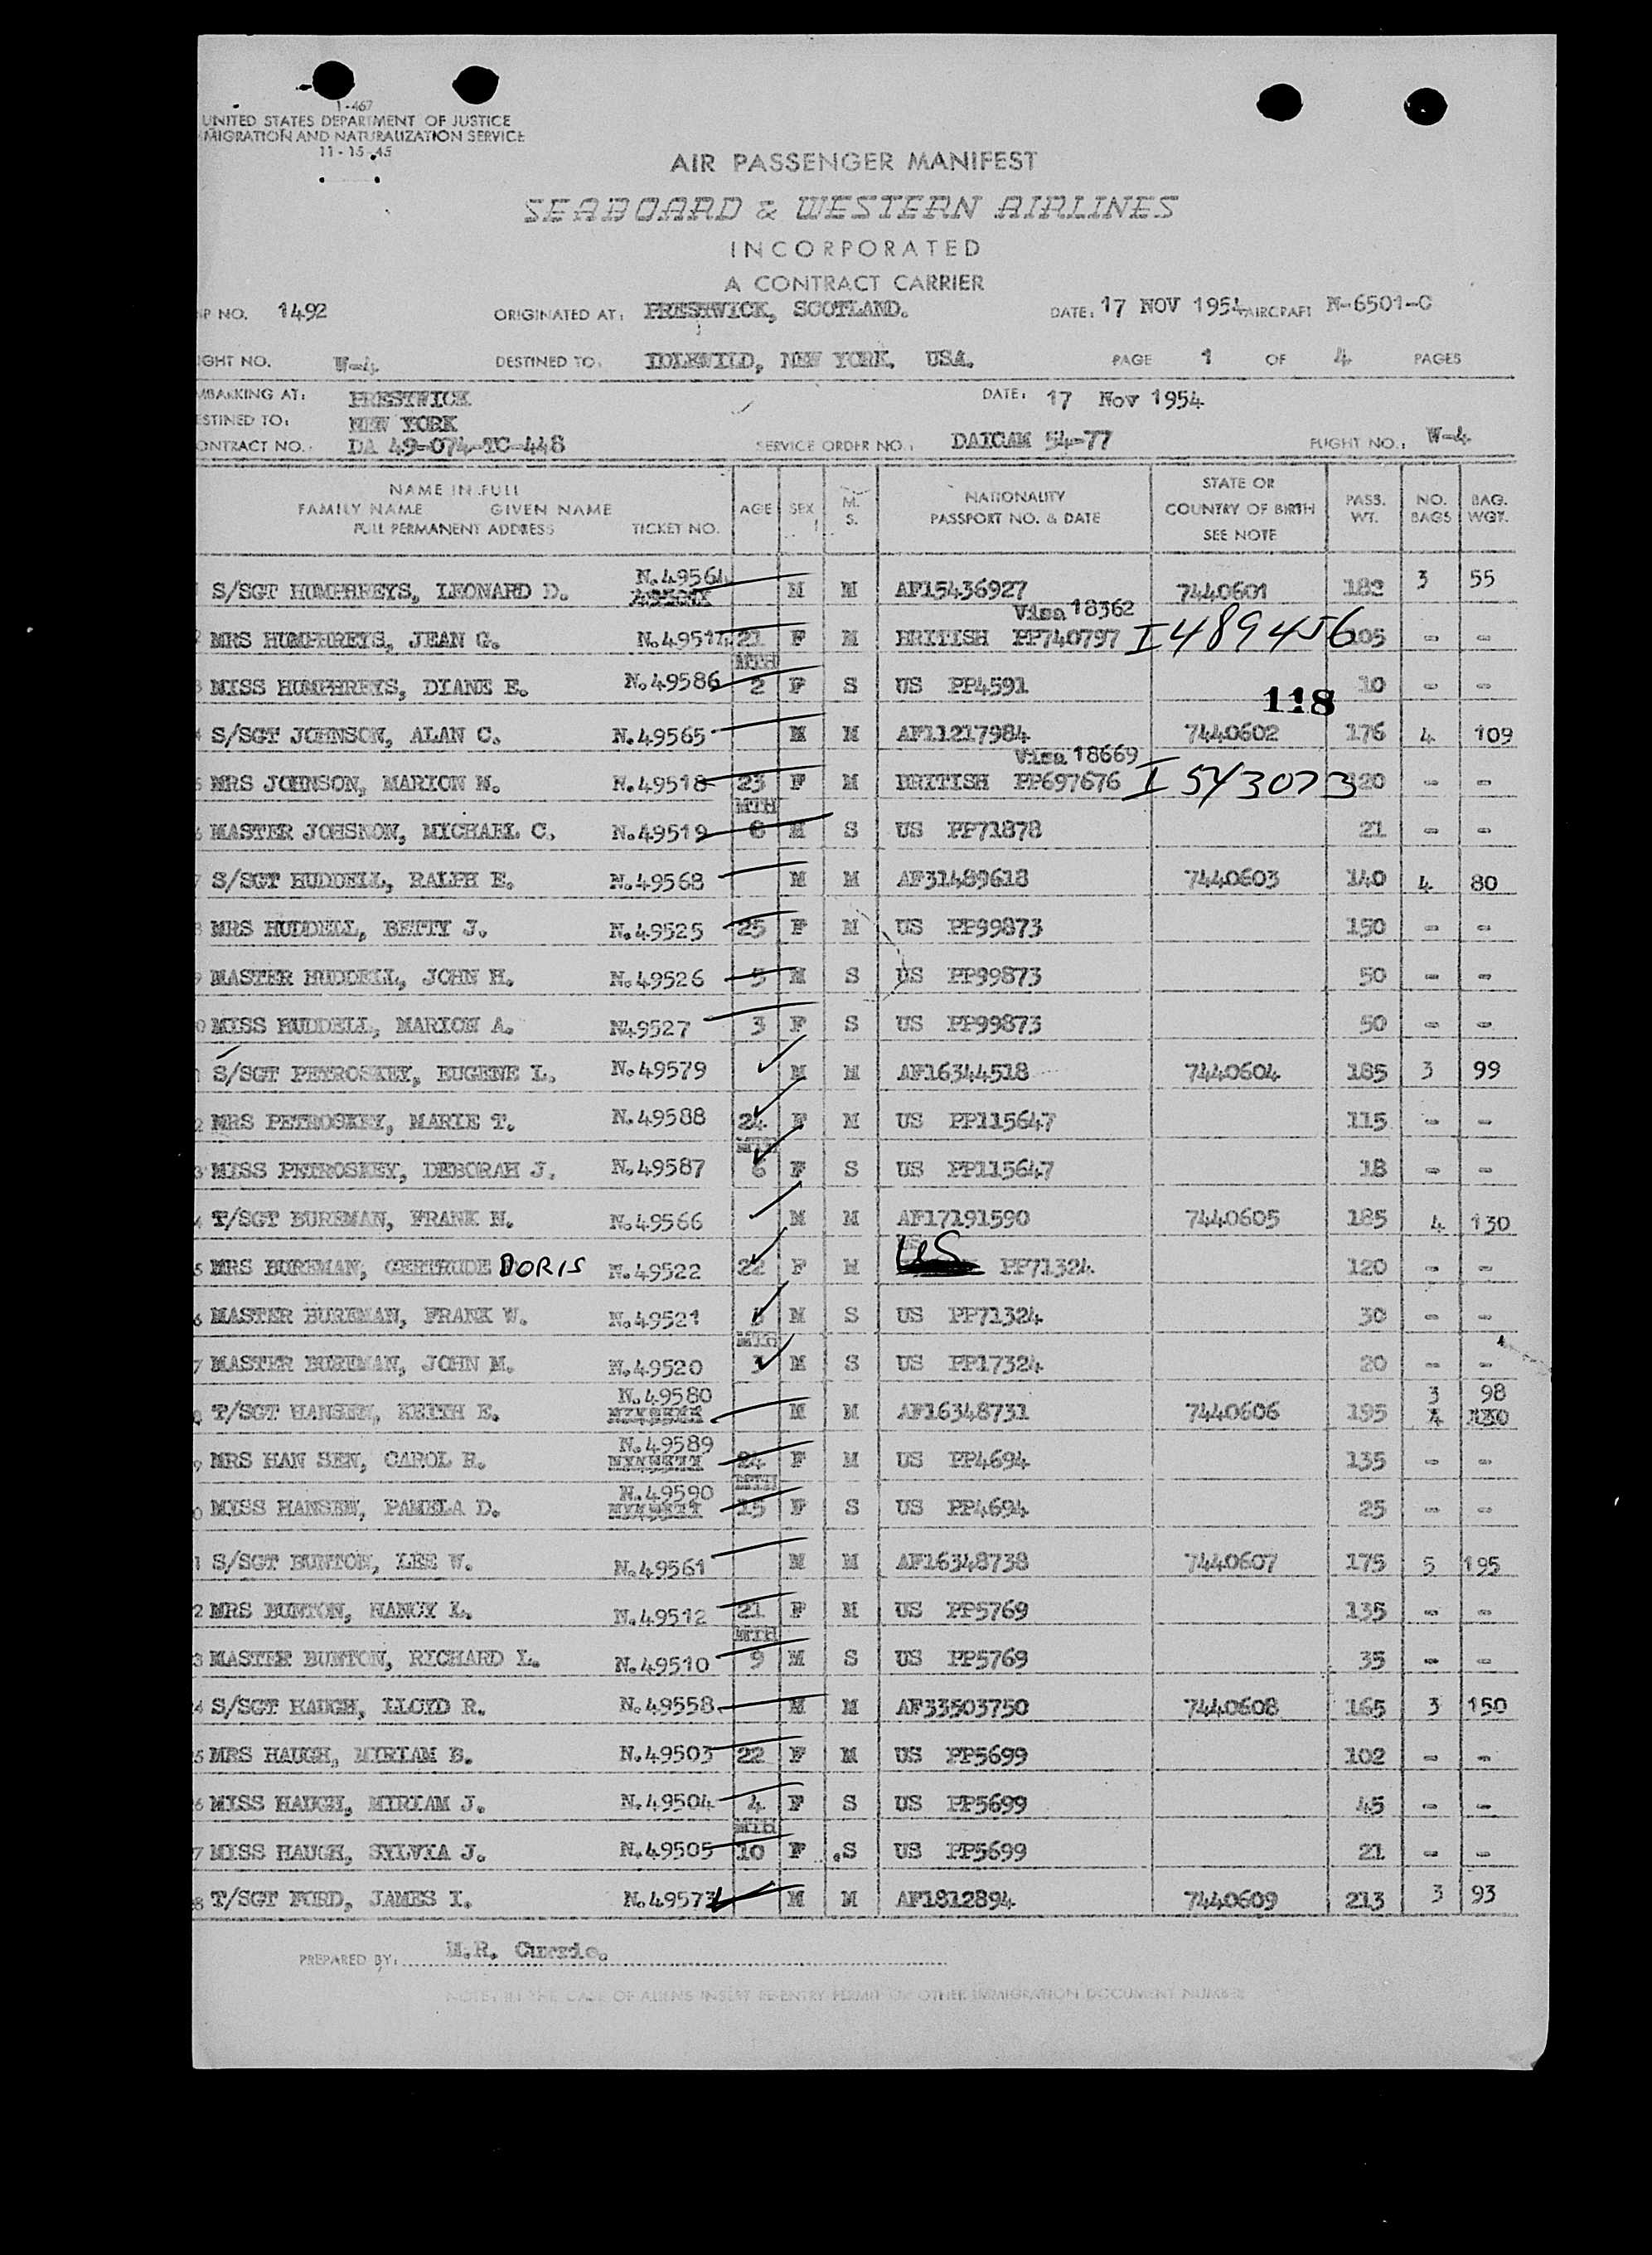 I-467
UNITED STATES DEPARTMENT OF JUSTICE
MIGRATION AND NATURALIZATION SERVICE
11-15-45
AIR PASSENGER MANIFEST
SEABOARD & WESTERN AIRLINES
INCORPORATED
A CONTRACT CARRIER
P NO. 1492 ORIGINATED AT: PRESTWICK, SCOTLAND. DATE: 17 NOV 1954 AIRCRAFT N-6501-C
IGHT NO. W-4 DESTINED TO: IDLEWILD, NEW YORK, USA. PAGE 1 OF 4 PAGES
MBARKING AT: PRESTWICK DATE: 17 Nov 1954
ESTINED TO: NEW YORK
ONTRACT NO. DA 49-074-TC-448 SERVICE ORDER NO.: DAICAM 54-77 FLIGHT NO.: W-4
NAME IN FULL
FAMILY NAME GIVEN NAME
FULL PERMANENT ADDRESS TICKET NO. AGE SEX M. S. NATIONALITY PASSPORT NO. & DATE STATE OR COUNTRY OF BIRTH SEE NOTE PASS. WT. NO. BAGS BAG. WGT.
S/SGT HUMPHREYS, LEONARD D. N.49564 M M AF15436927 7440601 182 3 55
2 MRS HUMPHREYS, JEAN G. N.49517 21 F M BRITISH Visa 18362 PP740797 I489456 105 - -
3 MISS HUMPHREYS, DIANE E. N.49586 MTH 2 F S US PP4591 10 - -
118
S/SGT JOHNSON, ALAN C. N.49565 M M AF11217984 7440602 176 4 109
5 MRS JOHNSON, MARION M. N.49518 23 F M BRITISH Visa 18669 PP697676 I543073 120 - -
6 MASTER JOHSNON, MICHAEL C. N.49519 MTH 8 M S US PP71878 21 - -
7 S/SGT HUDDELL, RALPH E. N.49568 M M AF31489618 7440603 140 4 80
8 MRS HUDDELL, BETTY J. N.49525 25 F M US PP99873 150 - -
9 MASTER HUDDELL, JOHN H. N.49526 5 M S US PP99873 50 - -
0 MISS HUDDELL, MARION A. N49527 3 F S US PP99873 50 - -
1 S/SGT PETROSKEY, EUGENE L. N.49579 M M AF16344518 7440604 185 3 99
2 MRS PETROSKEY, MARIE T. N.49588 24 F M US PP115647 115 - -
3 MISS PETROSKEY, DEBORAH J. N.49587 MTH 6 F S US PP115647 18 - -
4 T/SGT BUREMAN, FRANK N. N.49566 M M AF17191590 7440605 185 4 130
5 MRS BUREMAN, GERTRUDE DORIS N.49522 22 F M US PP71324 120 - -
6 MASTER BUREMAN, FRANK W. N.49521 M S US PP71324 30 - -
7 MASTER BUREMAN, JOHN M. N.49520 MTH 3 M S US PP17324 20 - -
T/SGT HANSEN, KEITH E. N.49580 M M AF16348731 7440606 195 3 98
9 MRS HAN SEN, CAROL R. N.49589 24 F M US PP4694 135 - -
0 MISS HANSEN, PAMELA D. N.49590 MTH 15 F S US PP4694 25 - -
1 S/SGT BUNTON, LEE W. N.49561 M M AF16348738 7440607 175 5 195
2 MRS BUNTON, NANCY L. N.49512 21 F M US PP5769 135 - -
3 MASTER BUNTON, RICHARD L. N.49510 MTH 9 M S US PP5769 35 - -
4 S/SGT HAUGH, LLOYD R. N.49558 M M AF33503750 7440608 165 3 150
5 MRS HAUGH, MYRIAM B. N.49503 22 F M US PP5699 102 - -
6 MISS HAUGH, MIRIAM J. N.49504 4 F S US PP5699 45 - -
7 MISS HAUGH, SYLVIA J. N.49505 MTH 10 F .S US PP5699 21 - -
8 T/SGT FORD, JAMES I. N.49573 M M AF1812894 7440609 213 3 93
PREPARED BY: M.R. Currie.
NOTE: IN THE CASE OF ALIENS INSERT RE-ENTRY PERMIT OR OTHER IMMIGRATION DOCUMENT NUMBER